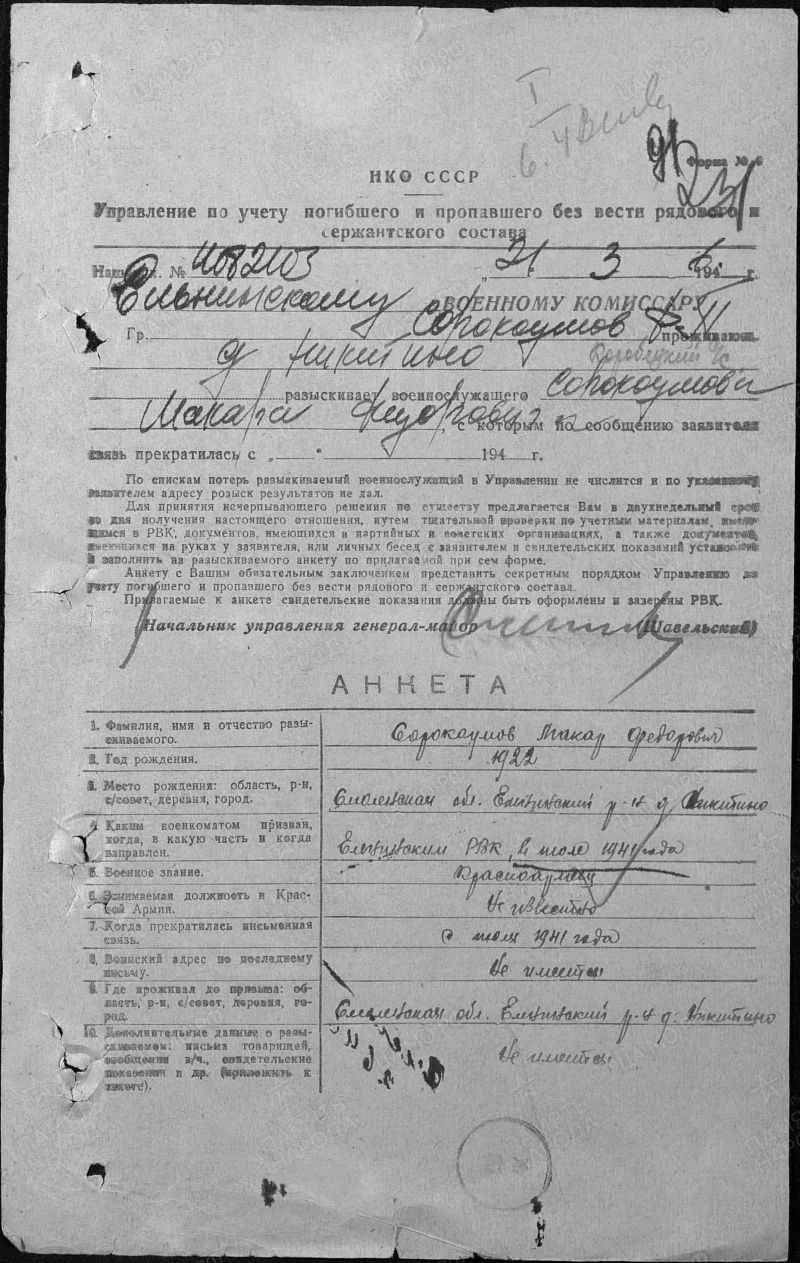 Форма № 6
231
НКО СССР
Управление по учету погибшего и пропавшего без вести рядового и
сержантского состава
Наш исх. № 4082103 „21" 3 1946 г.
Ельнинскому ВОЕННОМУ КОМИССАРУ
Гр. Сорокоумов проживающ.
д Никитино Коробецкий с/с
разыскивает военнослужащего Сорокоумова
Макара Федорович, с которым по сообщению заявителя
связь прекратилась с „ " 194 г.
По спискам потерь разыскиваемый военнослужащий в Управлении не числится и по указанному
заявителем адресу розыск результатов не дал.
Для принятия исчерпывающего решения по существу предлагается Вам в двухнедельный срок
со дня получения настоящего отношения, путем тщательной проверки по учетным материалам, имею-
щимся в РВК, документов, имеющихся в партийных и советских организациях, а также документов,
имеющихся на руках у заявителя, или личных бесед с заявителем и свидетельских показаний установить
и заполнить на разыскиваемого анкету по прилагаемой при сем форме.
Анкету с Вашим обязательным заключением представить секретным порядком Управлению по
учету погибшего и пропавшего без вести рядового и сержантского состава.
Прилагаемые к анкете свидетельские показания должны быть оформлены и заверены РВК.
Начальник управления генерал-майор (Шавельский)
АНКЕТА
1. Фамилия, имя и отчество разы-
скиваемого. Сорокаумов Макар Федорович
2. Год рождения. 1922
3. Место рождения: область, р-н,
с/совет, деревня, город. Смоленская обл. Ельнинский р-н д Никитино
4. Каким военкоматом призван,
когда, в какую часть и когда
направлен. Ельнинским РВК, в июле 1941 года
5. Военное звание. Красноармеец
6. Занимаемая должность в Крас-
ной Армии. Не известно
7. Когда прекратилась письменная
связь. с июля 1941 года
8. Воинский адрес по последнему
письму. Не имеется
9. Где проживал до призыва: об-
ласть, р-н, с/совет, деревня, го-
род. Смоленская обл. Ельнинский р-н д. Никитино
10. Дополнительные данные о разы-
скиваемом: письма товарищей,
сообщения в/ч., свидетельские
показания и др. (приложить к
анкете). Не имеется